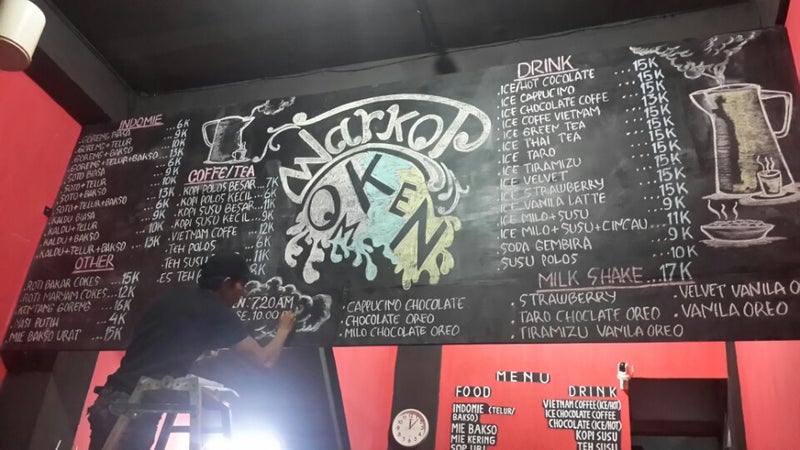 INDOMIE
.GORENG BIASA ...6K
.GORENG+TELUR ...9K
.GORENG+BAKSO ...10K
.GORENG+TELUR+BAKSO ...13K
.SOTO BIASA
.SOTO+TELUR
.SOTO+BAKSO ...10K
.SOTO+TELUR+BAKSO ...13K
.KALDU BIASA ...6K
.KALDU+TELUR ...9K
.KALDU+BAKSO ...10K
.KALDU+TELUR+BAKSO ...13K
OTHER
.ROTI BAKAR COKES ...15K
.ROTI MARYAM COKES ...12K
.KENTANG GORENG ...16K
.NASI PUTIH ...4K
.MIE BAKSO URAT ...15K
COFFE/TEA
.KOPI POLOS BESAR ...7K
.KOPI POLOS KECIL
.KOPI SUSU BESAR ...11K
.KOPI SUSU KECIL ...9K
.VIETNAM COFFE ...12K
.TEH POLOS ...6K
.TEH SUSU
.ES TEH
Warkop
OM KEN
N. 7.20 AM
SE. 10.00
.CAPPUCIMO CHOCOLATE
.CHOCOLATE OREO
.MILO CHOCOLATE OREO
DRINK
.ICE/HOT COCOLATE ...15K
.ICE CAPPUCIMO ...15K
.ICE CHOCOLATE COFFE ...15K
.ICE COFFE VIETNAM ...13K
.ICE GREEN TEA ...15K
.ICE THAI TEA ...15K
.ICE TARO ...15K
.ICE TIRAMIZU ...15K
.ICE VELVET ...15K
.ICE STRAWBERRY ...15K
.ICE VANILA LATTE
.ICE MILO+SUSU
.ICE MILO+SUSU+CINCAU
.SODA GEMBIRA
.SUSU POLOS ...10K
MILK SHAKE ...17K
.STRAWBERRY
.TARO CHOCLATE OREO
.TIRAMIZU VANILA OREO
.VELVET VANILA O
.VANILA OREO
MENU
FOOD
INDOMIE (TELUR/
BAKSO)
MIE BAKSO
MIE KERING
SOP UBI
DRINK
VIETNAM COFFEE (ICE/HOT)
ICE CHOCOLATE COFFEE
CHOCOLATE (ICE/HOT)
KOPI SUSU
TEH SUSU